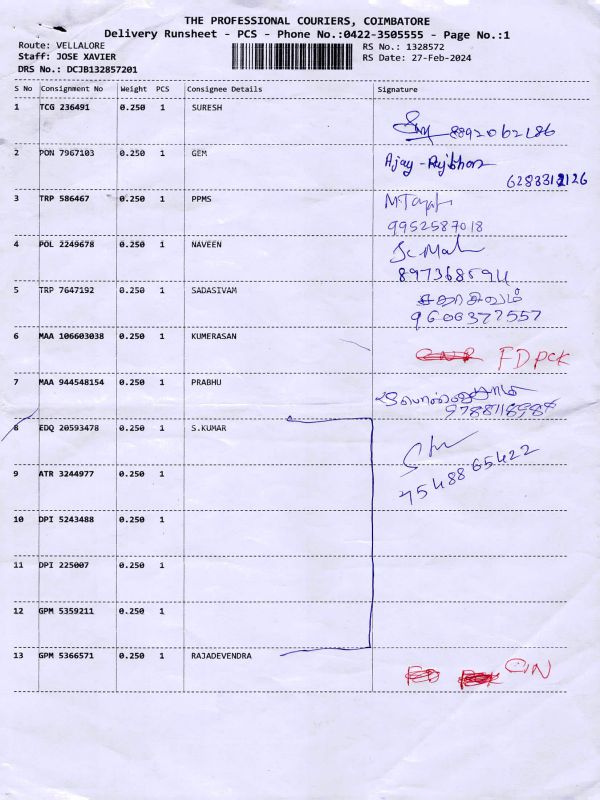 THE PROFESSIONAL COURIERS, COIMBATORE
Delivery Runsheet - PCS - Phone No.:0422-3505555 - Page No.:1
Route: VELLALORE RS No.: 1328572
Staff: JOSE XAVIER RS Date: 27-Feb-2024
DRS No.: DCJB132857201
S No Consignment No Weight PCS Consignee Details Signature
1 TCG 236491 0.250 1 SURESH
8892062186
2 PON 7967103 0.250 1 GEM Ajay
6283312126
3 TRP 586467 0.250 1 PPMS
9952587018
4 POL 2249678 0.250 1 NAVEEN
897368594
5 TRP 7647192 0.250 1 SADASIVAM சதாசிவம்
9600377557
6 MAA 106603038 0.250 1 KUMERASAN FDPCK
7 MAA 944548154 0.250 1 PRABHU
8 EDQ 20593478 0.250 1 S.KUMAR
7548865422
9 ATR 3244977 0.250 1
10 DPI 5243488 0.250 1
11 DPI 225007 0.250 1
12 GPM 5359211 0.250 1
13 GPM 5366571 0.250 1 RAJADEVENDRA